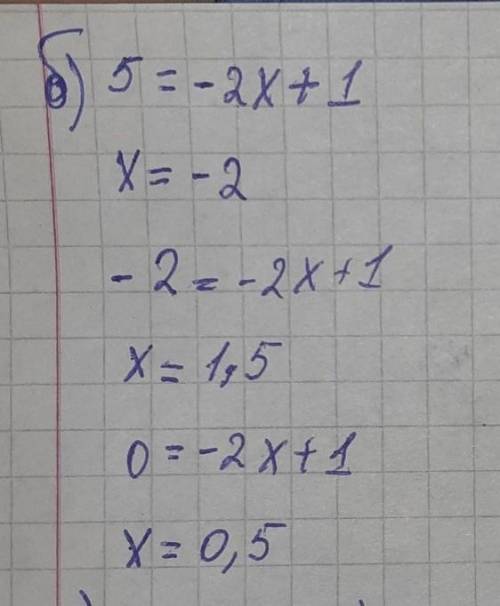 б) 5 = -2x + 1
x = -2
-2 = -2x + 1
x = 1,5
0 = -2x + 1
x = 0,5